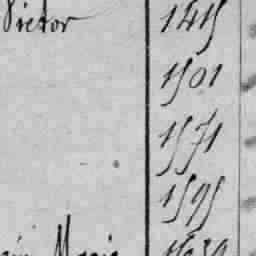 Victor 1415
1501
1571
1595
Marie